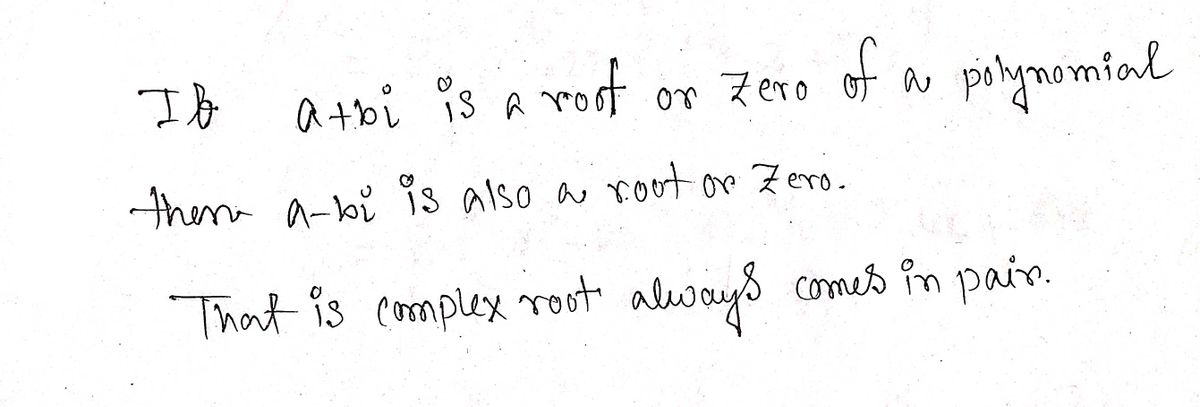 If a+bi is a root or zero of a polynomial
then a-bi is also a root or zero.
That is complex root always comes in pair.